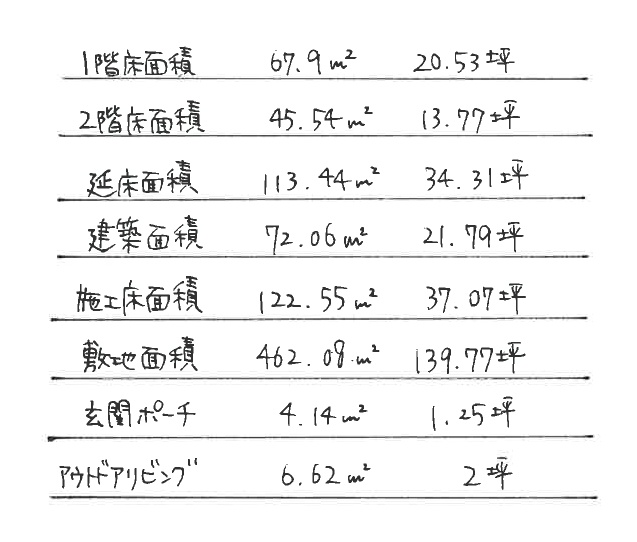 1階床面積 67.9m² 20.53坪
2階床面積 45.54m² 13.77坪
延床面積 113.44m² 34.31坪
建築面積 72.06m² 21.79坪
施工床面積 122.55m² 37.07坪
敷地面積 462.08m² 139.77坪
玄関ポーチ 4.14m² 1.25坪
アウトドアリビング 6.62m² 2坪